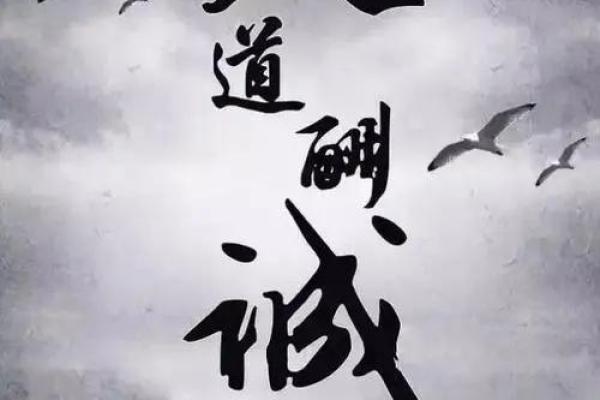 道酬诚